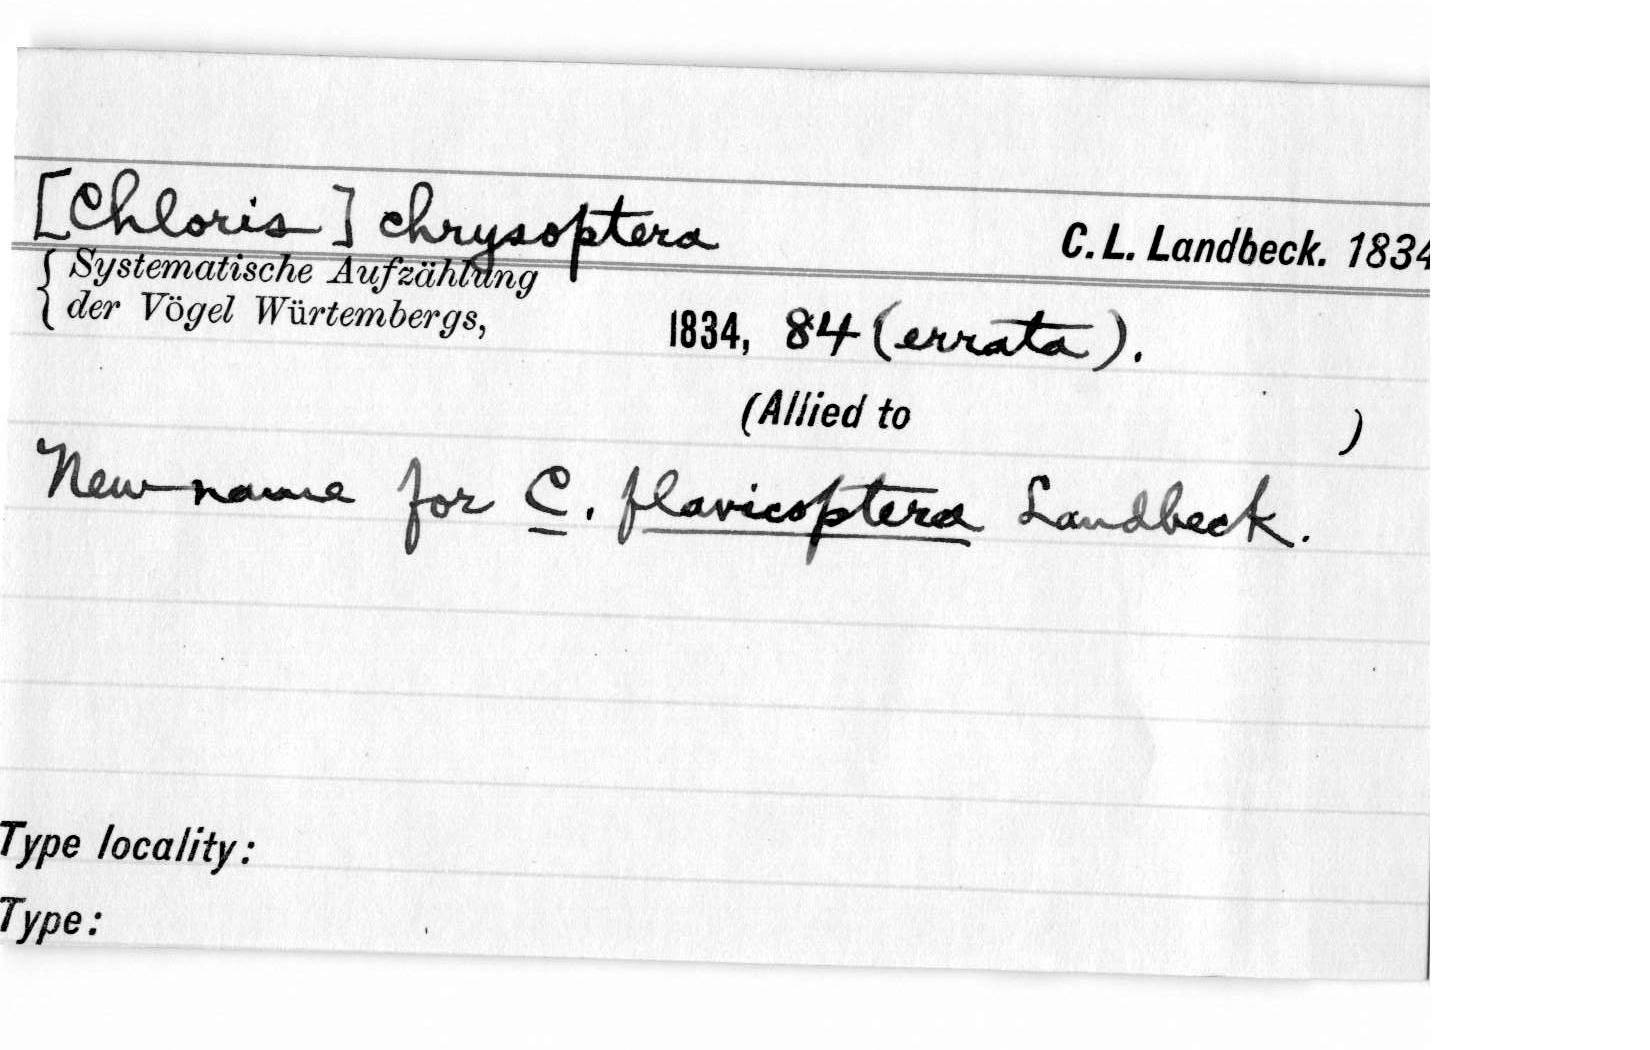 [Chloris] chrysoptera C. L. Landbeck. 1834
{ Systematische Aufzählung
der Vögel Würtembergs, 1834, 84 (errata).
(Allied to )
New name for C. flavicoptera Landbeck.
Type locality:
Type: